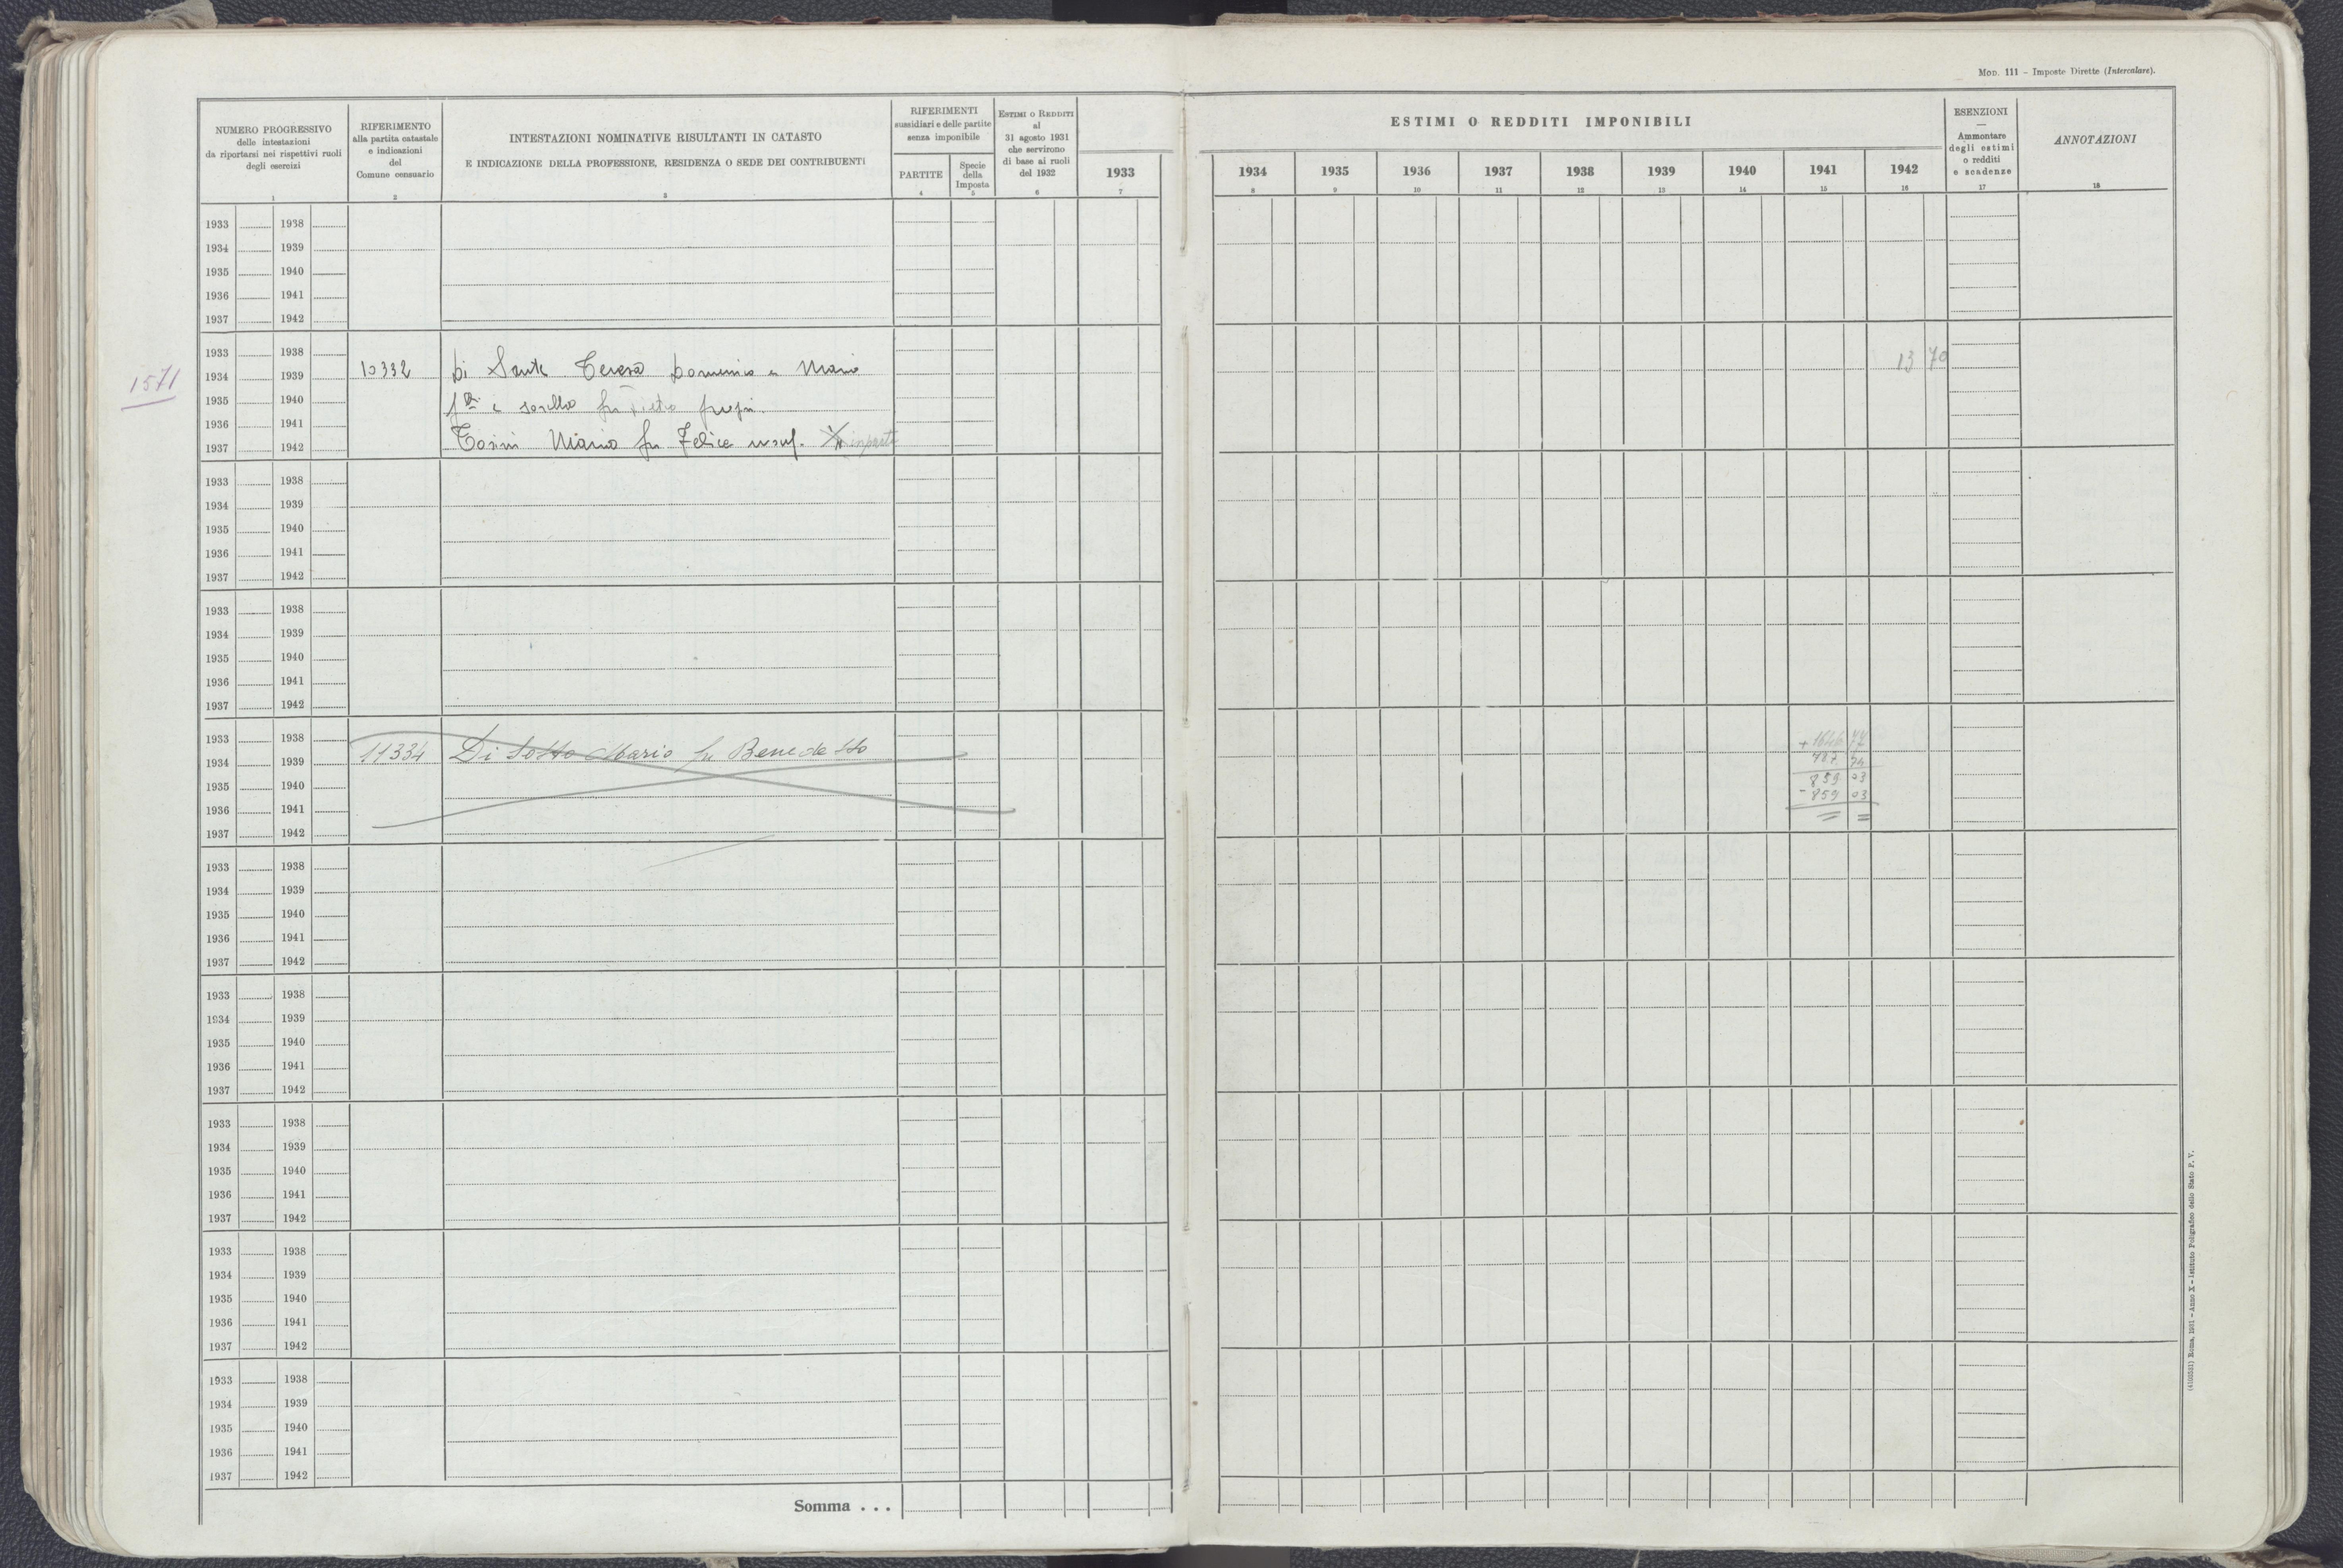 MOD. 111 – Imposte Dirette (Intercalare).
NUMERO PROGRESSIVO
delle intestazioni
da riportarsi nei rispettivi ruoli
degli esercizi
1
RIFERIMENTO
alla partita catastale
e indicazioni
del
Comune censuario
2
INTESTAZIONI NOMINATIVE RISULTANTI IN CATASTO
E INDICAZIONE DELLA PROFESSIONE, RESIDENZA O SEDE DEI CONTRIBUENTI
3
RIFERIMENTI
sussidiari e delle partite
senza imponibile
PARTITE
4
Specie
della
Imposta
5
ESTIMI O REDDITI
al
31 agosto 1931
che servirono
di base ai ruoli
del 1932
6
ESTIMI O REDDITI IMPONIBILI
1933 1934 1935 1936 1937 1938 1939 1940 1941 1942
7 8 9 10 11 12 13 14 15 16
ESENZIONI
—
Ammontare
degli estimi
o redditi
e scadenze
17
ANNOTAZIONI
18
1933 1938
1934 1939
1935 1940
1936 1941
1937 1942
1571
1933 1938
1934 1939 10332 Di Sante Teresa Domenico e Maria 13 70
1935 1940 f.lli e sorella fu Pietro propr.
1936 1941
1937 1942 Tosini Maria fu Felice usuf. in parte
1933 1938
1934 1939
1935 1940
1936 1941
1937 1942
1933 1938
1934 1939
1935 1940
1936 1941
1937 1942
1933 1938
1934 1939 11334 Di Sotto Mario fu Benedetto
1935 1940 859 03
1936 1941 - 859 03
1937 1942
1933 1938
1934 1939
1935 1940
1936 1941
1937 1942
1933 1938
1934 1939
1935 1940
1936 1941
1937 1942
1933 1938
1934 1939
1935 1940
1936 1941
1937 1942
1933 1938
1934 1939
1935 1940
1936 1941
1937 1942
1933 1938
1934 1939
1935 1940
1936 1941
1937 1942
Somma . . .
Roma, 1931 – Anno X – Istituto Poligrafico dello Stato P. V.